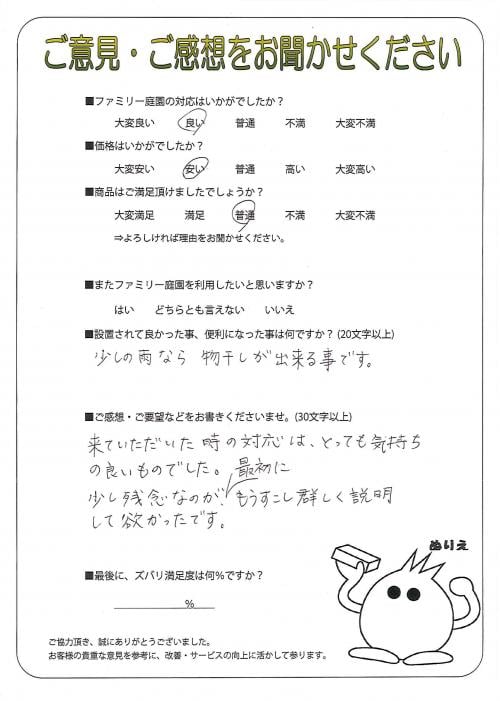 ご意見・ご感想をお聞かせください
■ファミリー庭園の対応はいかがでしたか？
大変良い 良い 普通 不満 大変不満
■価格はいかがでしたか？
大変安い 安い 普通 高い 大変高い
■商品はご満足頂けましたでしょうか？
大変満足 満足 普通 不満 大変不満
⇒よろしければ理由をお聞かせください。
■またファミリー庭園を利用したいと思いますか？
はい どちらとも言えない いいえ
■設置されて良かった事、便利になった事は何ですか？(20文字以上)
少しの雨なら 物干しが出来る事です。
■ご感想・ご要望などをお書きくださいませ。(30文字以上)
来ていただいた時の対応は、とっても気持ち
の良いものでした。
最初に
少し残念なのが、もうすこし群しく説明
して欲かったです。
ぬりえ
■最後に、ズバリ満足度は何%ですか？
%
ご協力頂き、誠にありがとうございました。
お客様の貴重な意見を参考に、改善・サービスの向上に活かして参ります。